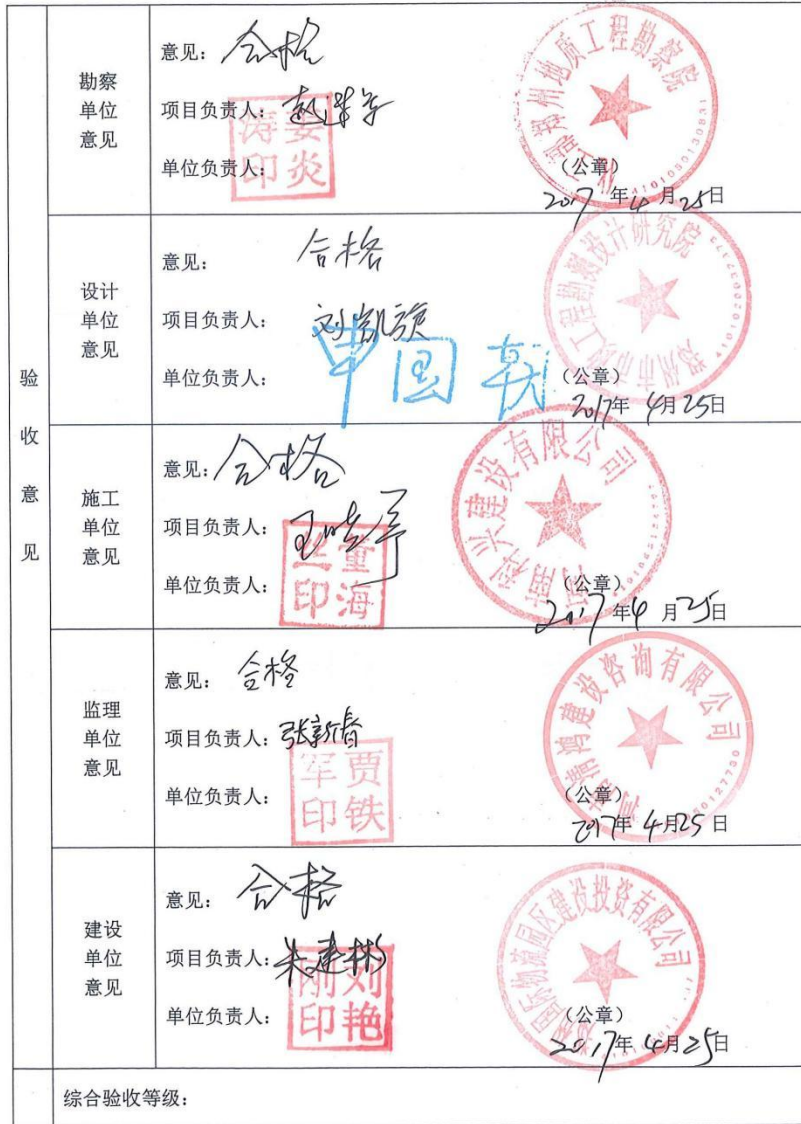 验收意见
勘察单位意见
意见：合格
项目负责人：
姜炎涛印
单位负责人：
郑州地质工程勘察院
4101050130831
（公章）
2017年4月25日
设计单位意见
意见：合格
项目负责人：刘凯旋
单位负责人：
郑州市市政工程勘测设计研究院
（公章）
2017年4月25日
施工单位意见
意见：合格
项目负责人：
董海丝印
单位负责人：
河南科兴建设有限公司
（公章）
2017年4月25日
监理单位意见
意见：合格
项目负责人：张新春
贾铁军印
单位负责人：
建设咨询有限公司
（公章）
2017年4月25日
建设单位意见
意见：合格
项目负责人：朱建彬
刘艳刚印
单位负责人：
国际物流园区建设投资有限公司
（公章）
2017年4月25日
综合验收等级：